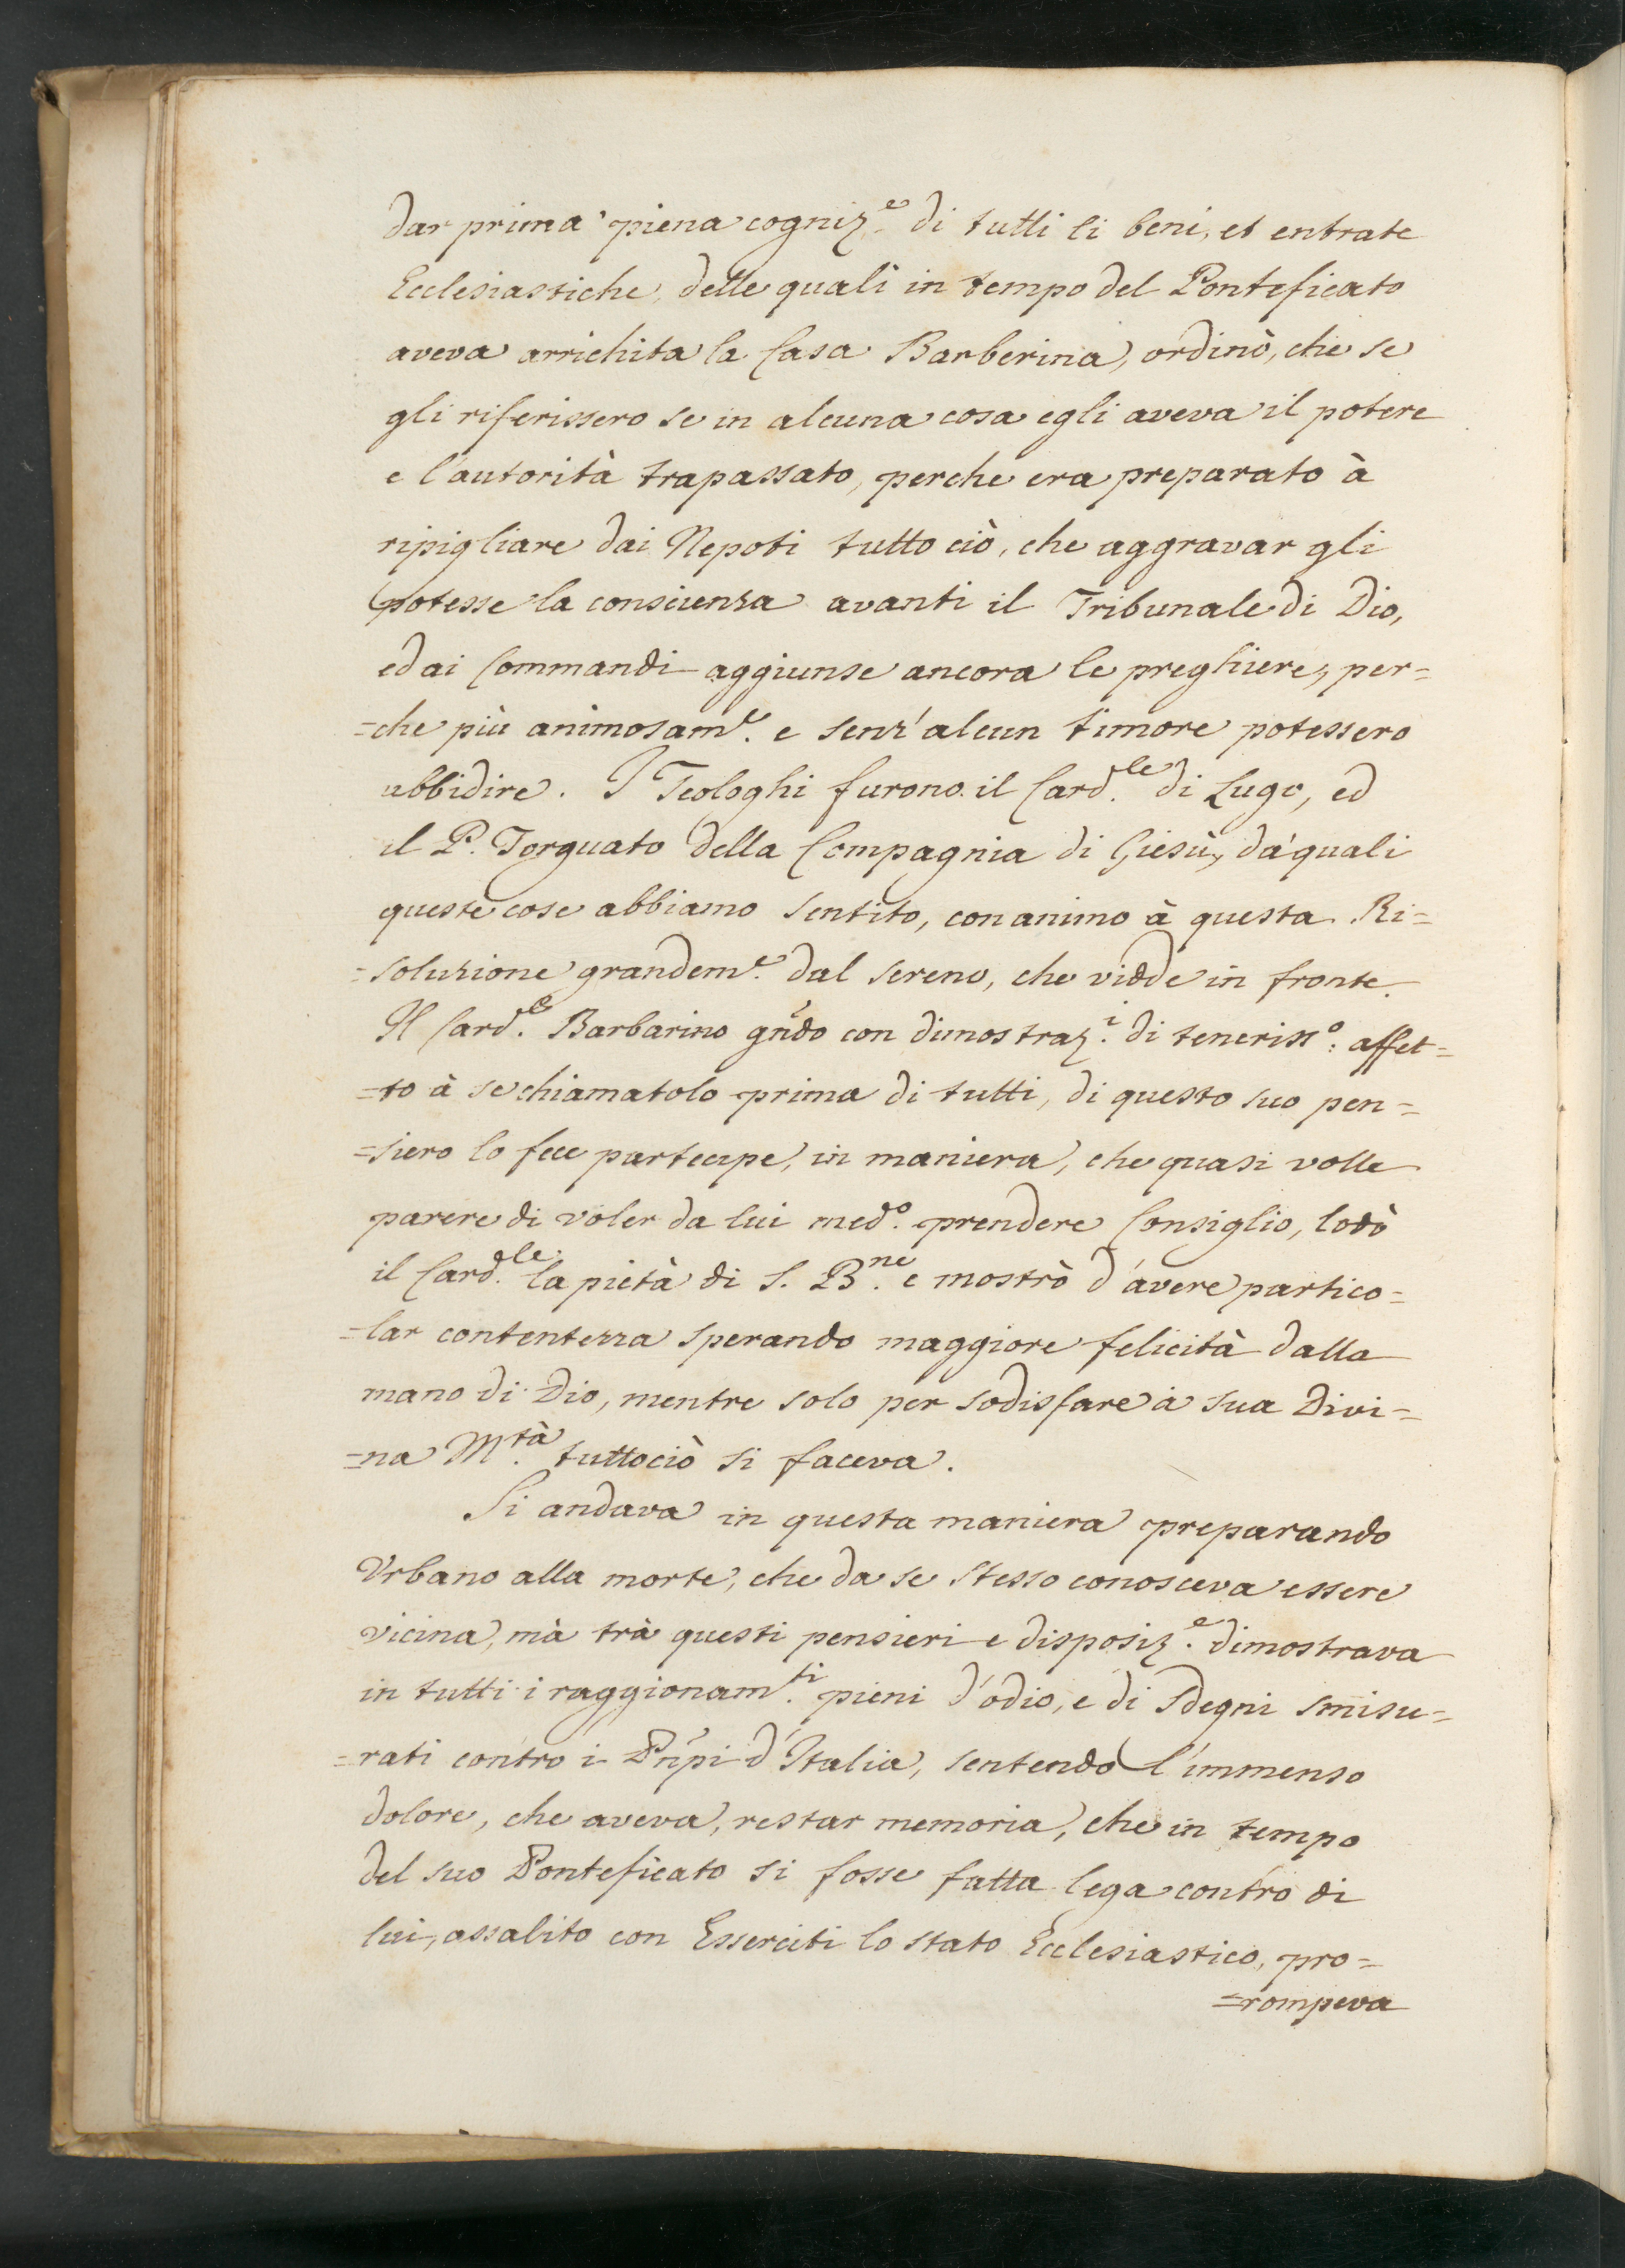 dar prima piena cogniz.e di tutti li beni, et entrate
Ecclesiastiche, delle quali in tempo del Pontificato
aveva arrichita la Casa Barberina, ordinò, che se
gli riferissero se in alcuna cosa egli aveva il potere
e l'autorità trapassato, perche era preparato à
ripigliare dai Nepoti tutto ciò, che aggravar gli
potesse la conscienza avanti il Tribunale di Dio,
ed ai Commandi aggiunse ancora le preghiere, per=
=che più animosam.e e senz'alcun timore potessero
ubbidire. I Teologhi furono il Card.le di Lugo, ed
il P. Torquato della Compagnia di Giesù, da' quali
queste cose abbiamo sentito, con animo à questa Ri=
=soluzione grandem.e dal sereno, che vidde in fronte.
Il Card.e Barbarino gñdo con dimostraz.i di teneriss.o affet=
=to à se chiamatolo prima di tutti, di questo suo pen=
=siero lo fece partecipe, in maniera, che quasi volle
parere di voler da lui med.o prendere Consiglio, lodò
il Card.le la pietà di S. B.ne e mostrò d'avere partico=
=lar contentezza sperando maggiore felicità dalla
mano di Dio, mentre solo per sodisfare à sua Divi=
=na M.tà tuttociò si faceva.
Si andava in questa maniera preparando
Urbano alla morte, che da se stesso conosceva essere
vicina, mà trà questi pensieri e disposiz.e dimostrava
in tutti i raggionam.ti pieni d'odio, e di sdegni smisu=
=rati contro i Pñpi d'Italia, sentendo l'immenso
dolore, che aveva, restar memoria, che in tempo
del suo Ponteficato si fosse fatta lega contro di
lui, assalito con Esserciti lo stato Ecclesiastico, pro=
=rompeva